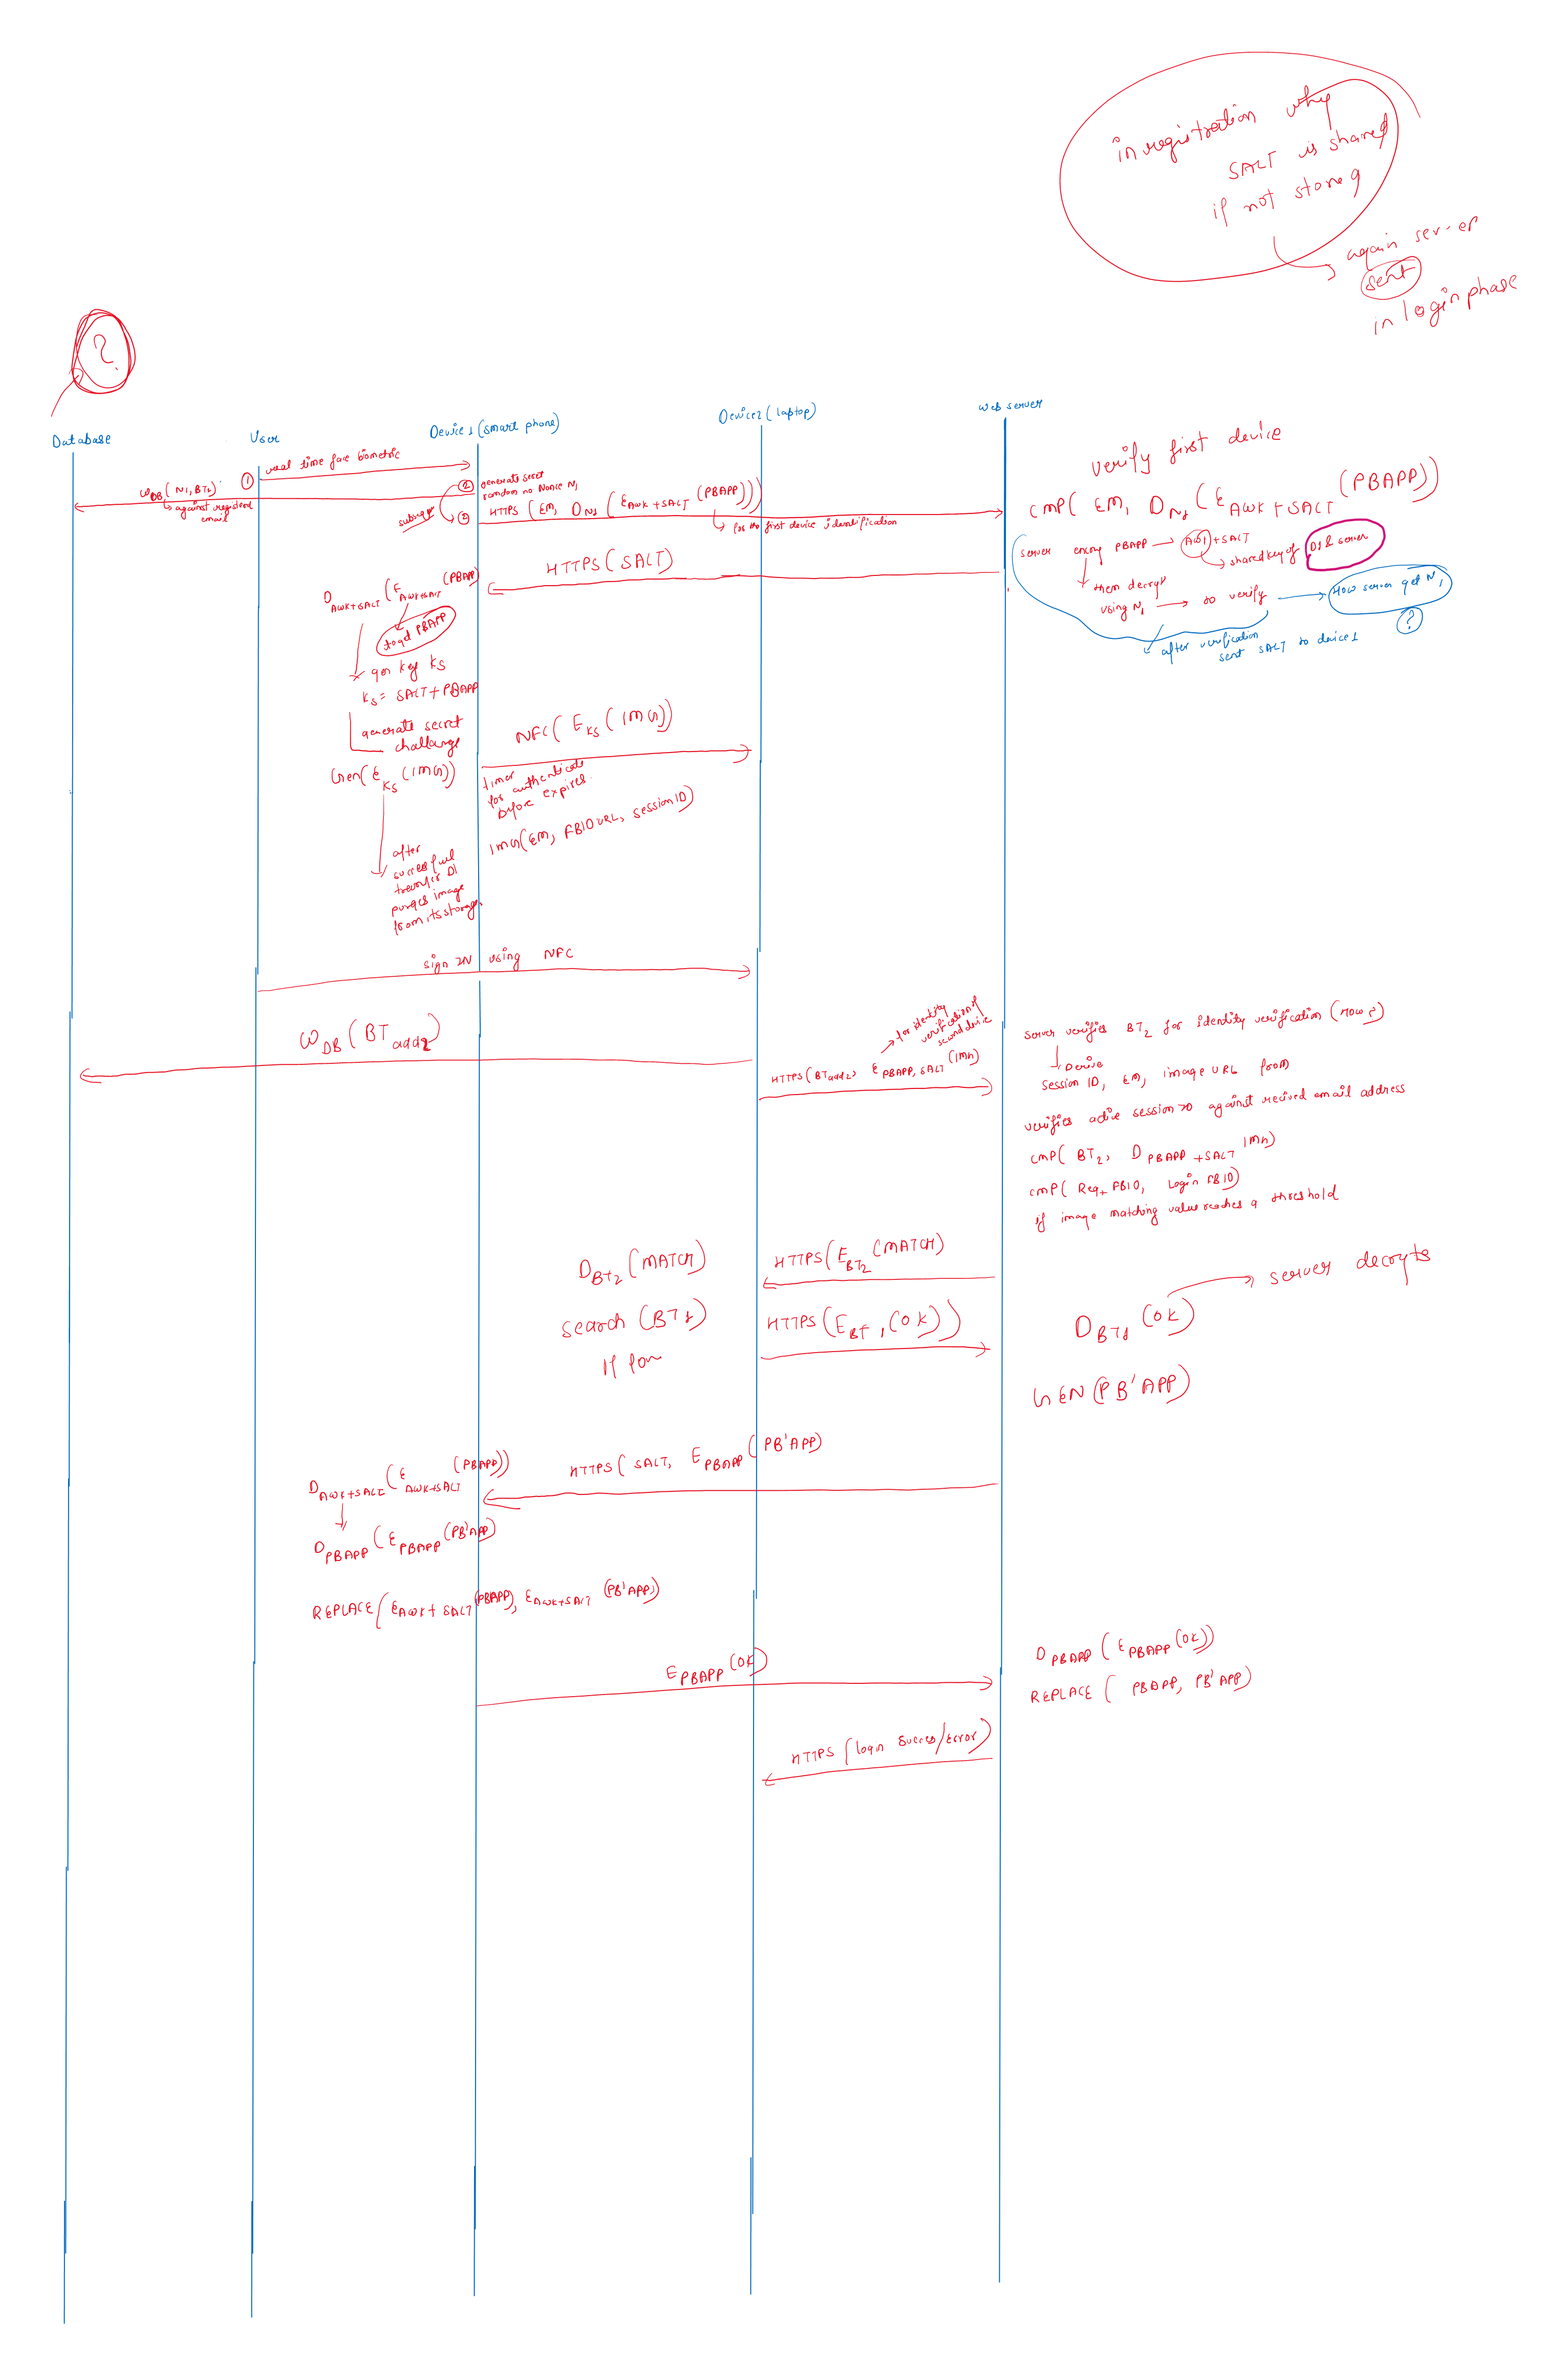 in registration why
SALT is shared
if not stored
again server
sent
in login phase
?
Database
User
Device 1 (smart phone)
Device 2 (laptop)
Web server
① real time face biometric
verify first device
W_DB (N1, BT1)
against registered
email
② generate secret
random no Nonce N1
③ HTTPS (EM, D_N1 (E_AWK+SALT (PBAPP)))
for the first device identification
CMP( EM, D_N1 ( E_AWK+SALT (PBAPP))
server encry PBAPP → AW1 + SALT
shared key of D1 & server
then decrypt
using N1 → to verify → How server get N1
?
after verification
sent SALT to device 1
HTTPS (SALT)
D_AWK+SALT (E_AWK+SALT (PBAPP)
to get PBAPP
gen key Ks
Ks = SALT + PBAPP
generate secret
challange
Gen( E_KS (IMG))
NFC( E_KS (IMG))
timer
for authenticate
before expires.
IMG(EM, FBIO URL, session ID)
after
successful
transfer D1
purges image
from its storage.
sign IN using NFC
W_DB (BT add2)
for identity
verification of
second device
HTTPS (BT add2, E_PBAPP, SALT (IMG)
server verifies BT2 for identity verification (How?)
Derive
Session ID, EM, image URL from
verifies active session ID against recived email address
CMP( BT2, D_PBAPP+SALT IMG)
CMP( Reg. FBIO, Login FBIO)
if image matching value reaches a threshold
D_BT2 (MATCH)
HTTPS( E_BT2 (MATCH)
search (BT1)
If fou
HTTPS( E_BT1 (OK))
D_BT1 (OK)
server decryts
GEN (PB'APP)
HTTPS( SALT, E_PBAPP (PB'APP)
D_AWK+SALT (E_AWK+SALT (PBAPP))
D_PBAPP (E_PBAPP (PB'APP)
REPLACE( E_AWK+SALT (PBAPP), E_AWK+SALT (PB'APP)
E_PBAPP (OK)
D_PBAPP ( E_PBAPP (OK))
REPLACE ( PBAPP, PB'APP)
HTTPS (login success/error)